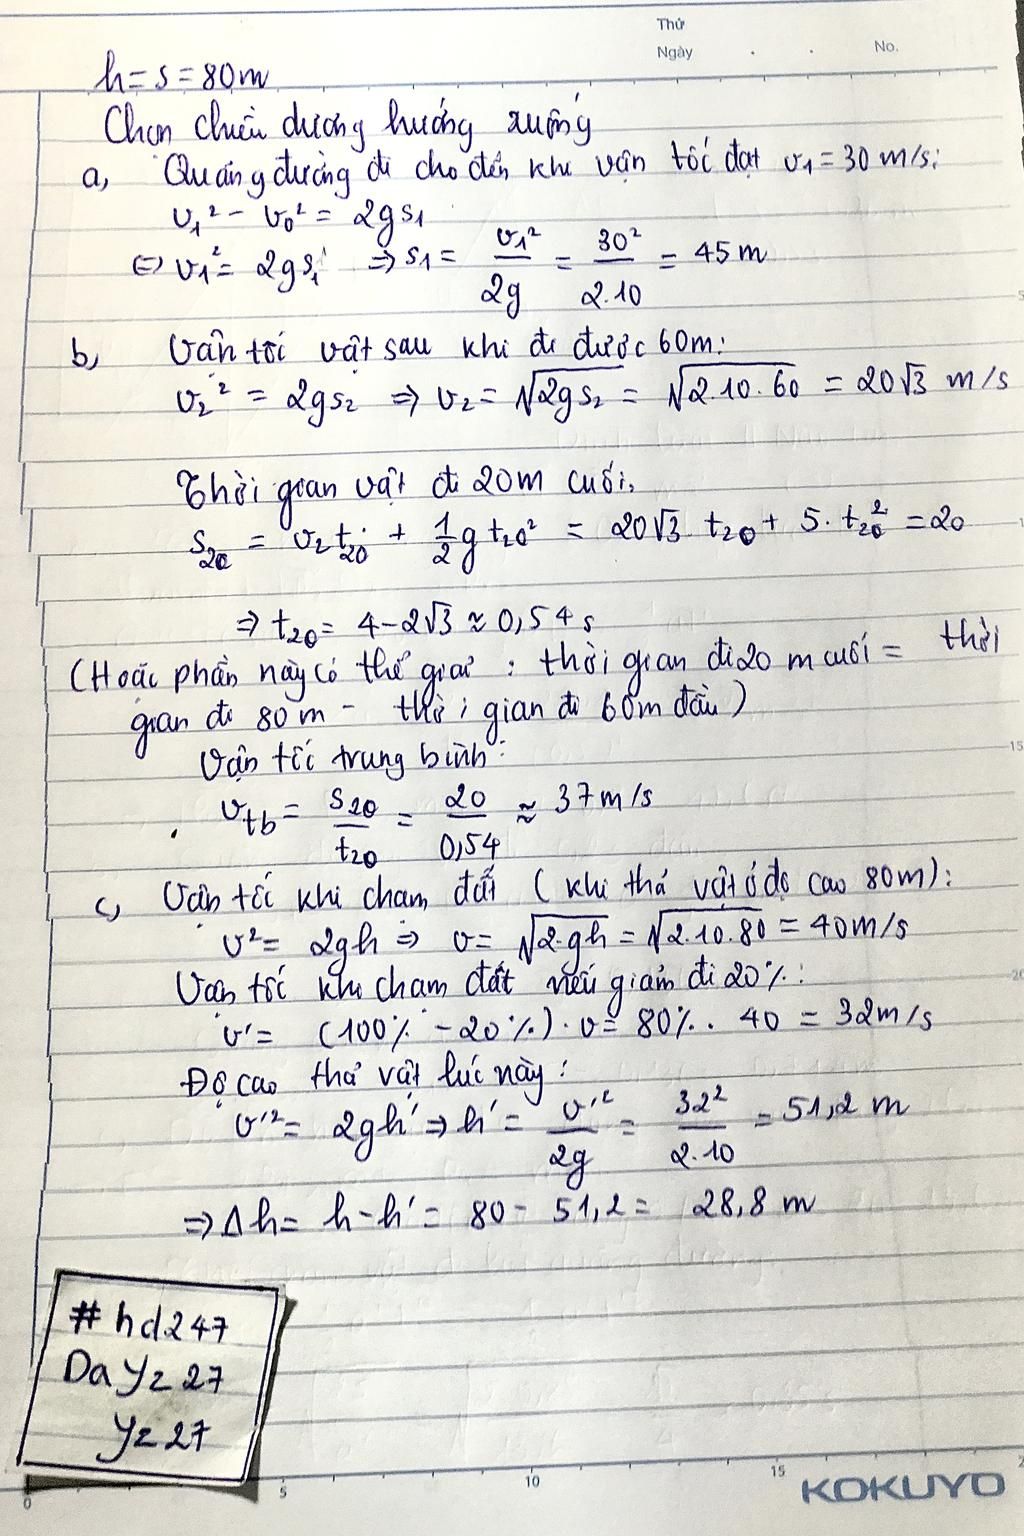 Thứ
Ngày . . No.
h = s = 80m
Chọn chiều dương hướng xuống
a, Quãng đường đi cho đến khi vận tốc đạt v₁ = 30 m/s:
v₁² - v₀² = 2gs₁
⇔ v₁² = 2gs₁ ⇒ s₁ = v₁²/2g = 30²/2.10 = 45 m
b, Vận tốc vật sau khi đi được 60m:
v₂² = 2gs₂ ⇒ v₂ = √2gs₂ = √2.10.60 = 20√3 m/s
Thời gian vật đi 20m cuối,
s₂₀ = v₂t₂₀ + 1/2 g t₂₀² = 20√3 . t₂₀ + 5. t₂₀² = 20
⇒ t₂₀ = 4-2√3 ≈ 0,54 s
(Hoặc phần này có thể giải : thời gian đi 20 m cuối = thời
gian đi 80m - thời gian đi 60m đầu)
Vận tốc trung bình:
vtb = s₂₀/t₂₀ = 20/0,54 ≈ 37m/s
c, Vận tốc khi chạm đất (khi thả vật ở độ cao 80m):
v² = 2gh ⇒ v = √2.gh = √2.10.80 = 40m/s
Vận tốc khi chạm đất nếu giảm đi 20%:
v' = (100% - 20%) . v = 80% . 40 = 32m/s
Độ cao thả vật lúc này:
v'² = 2gh' ⇒ h' = v'²/2g = 32²/2.10 = 51,2 m
⇒ Δh = h - h' = 80 - 51,2 = 28,8 m
#hd247
Dayz27
yz27
0 5 10 15
KOKUYO